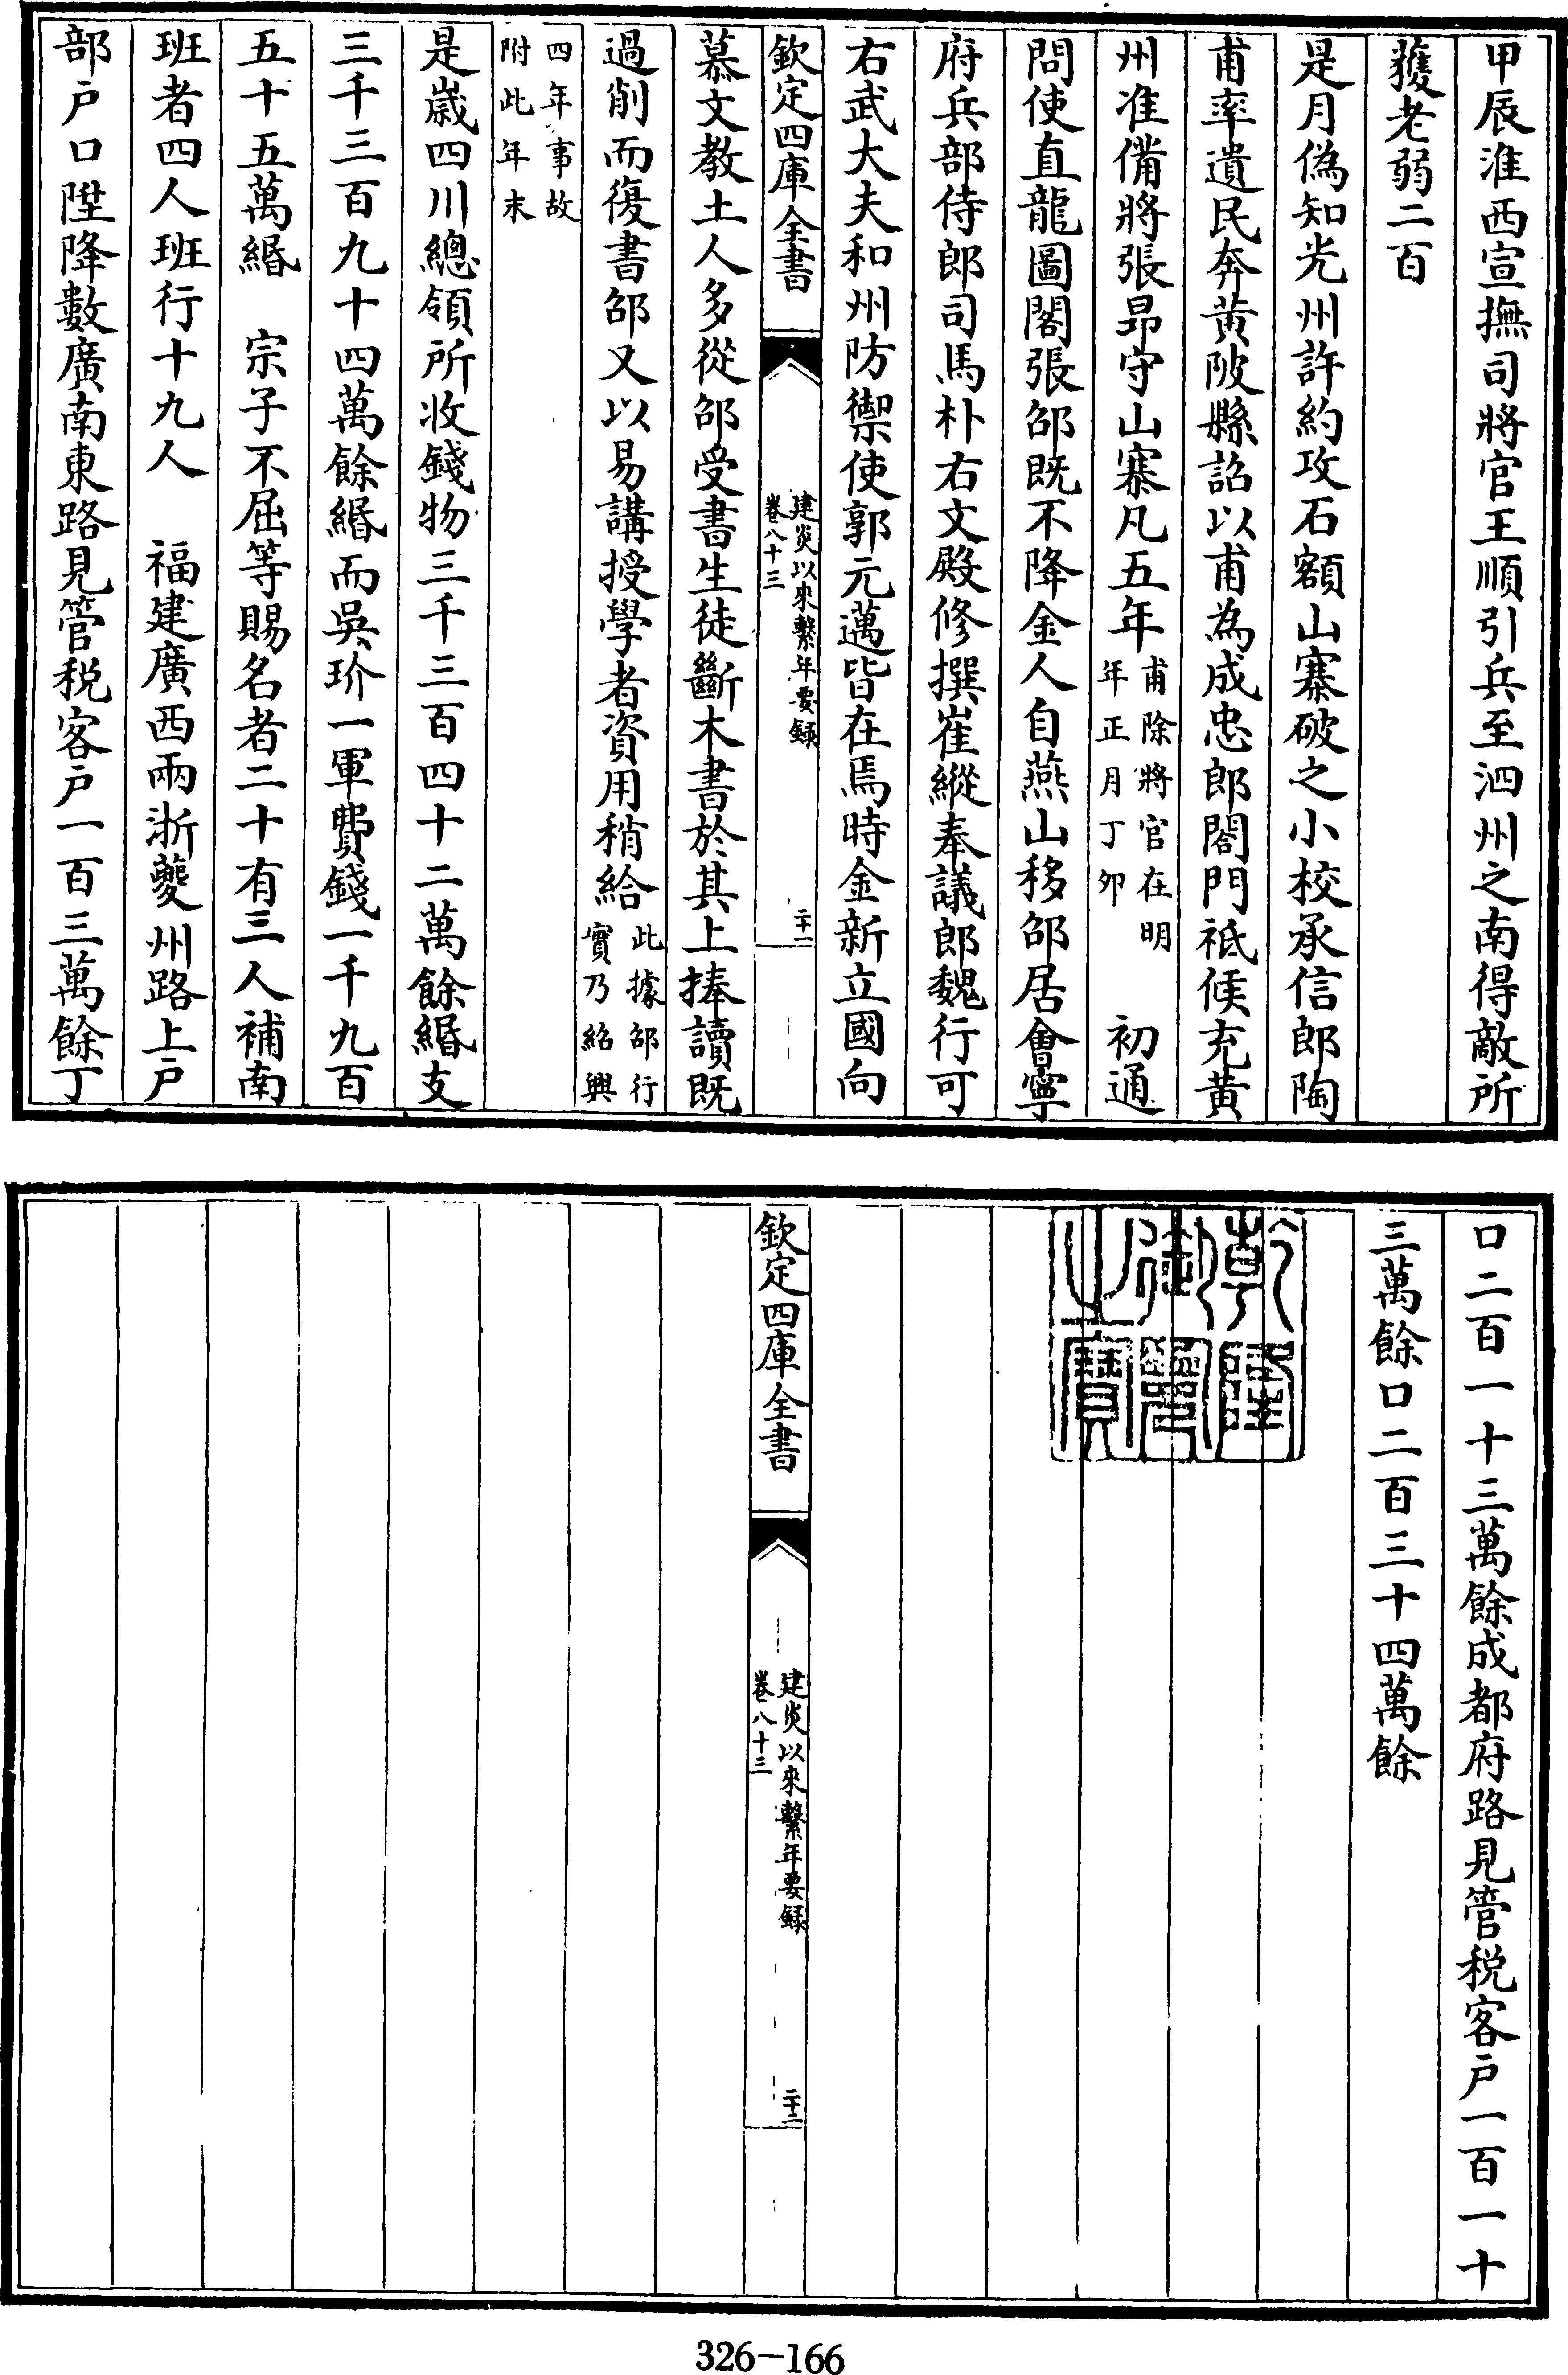 甲辰淮西宣撫司將官王順引兵至泗州之南得敵所
獲老弱二百
是月偽知光州許約攻石額山寨破之小校承信郎陶
甫率遺民奔黃陂縣詔以甫為成忠郎閤門祗候充黃
州准備將張昻守山寨凡五年甫除將官在明年正月丁夘 初通
問使直龍圖閣張邵既不降金人自燕山移邵居會寧
府兵部侍郎司馬朴右文殿修撰崔縱奉議郎魏行可
右武大夫和州防禦使郭元邁皆在焉時金新立國向
欽定四庫全書
建炎以來繫年要録
卷八十三
二十一
慕文教土人多從邵受書生徒斷木書於其上捧讀既
過削而復書邵又以易講授學者資用稍給此據邵行實乃紹興
四年事故附此年末
是歲四川總領所收錢物三千三百四十二萬餘緡支
三千三百九十四萬餘緡而吳玠一軍費錢一千九百
五十五萬緡 宗子不屈等賜名者二十有三人補南
班者四人班行十九人 福建廣西兩浙夔州路上戶
部戶口陞降數廣南東路見管税客戶一百三萬餘丁
口二百一十三萬餘成都府路見管税客戶一百一十
三萬餘口二百三十四萬餘
乾隆御覽之寶
欽定四庫全書
建炎以來繫年要録
卷八十三
二十二
326-166